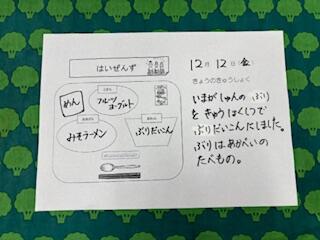 はいぜんず
めん
フルーツ
ヨーグルト
みそラーメン
ぶりだいこん
12月 12日(金)
きょうのきゅうしょく
いまがしゅんの ぶり
を きゅうはくしつで
ぶりだいこんにしました。
ぶりは、あかいろの
たべもの。